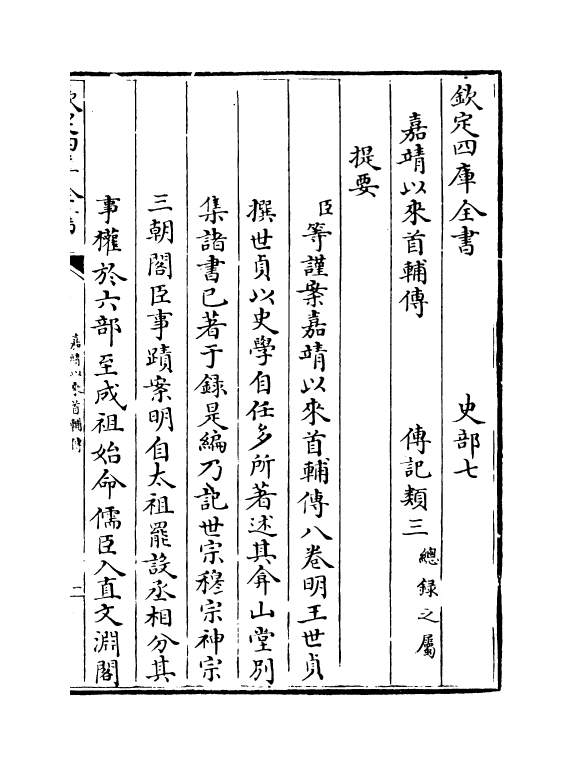 欽定四庫全書　史部七
嘉靖以來首輔傳　傳記類三總録之屬
提要
臣等謹案嘉靖以來首輔傳八卷明王世貞
撰世貞以史學自任多所著述其弇山堂别
集諸書已著于録是編乃記世宗穆宗神宗
三朝閣臣事蹟案明自太祖罷設丞相分其
事權於六部至成祖始命儒臣入直文淵閣
欽定四庫全書
嘉靖以來首輔傳